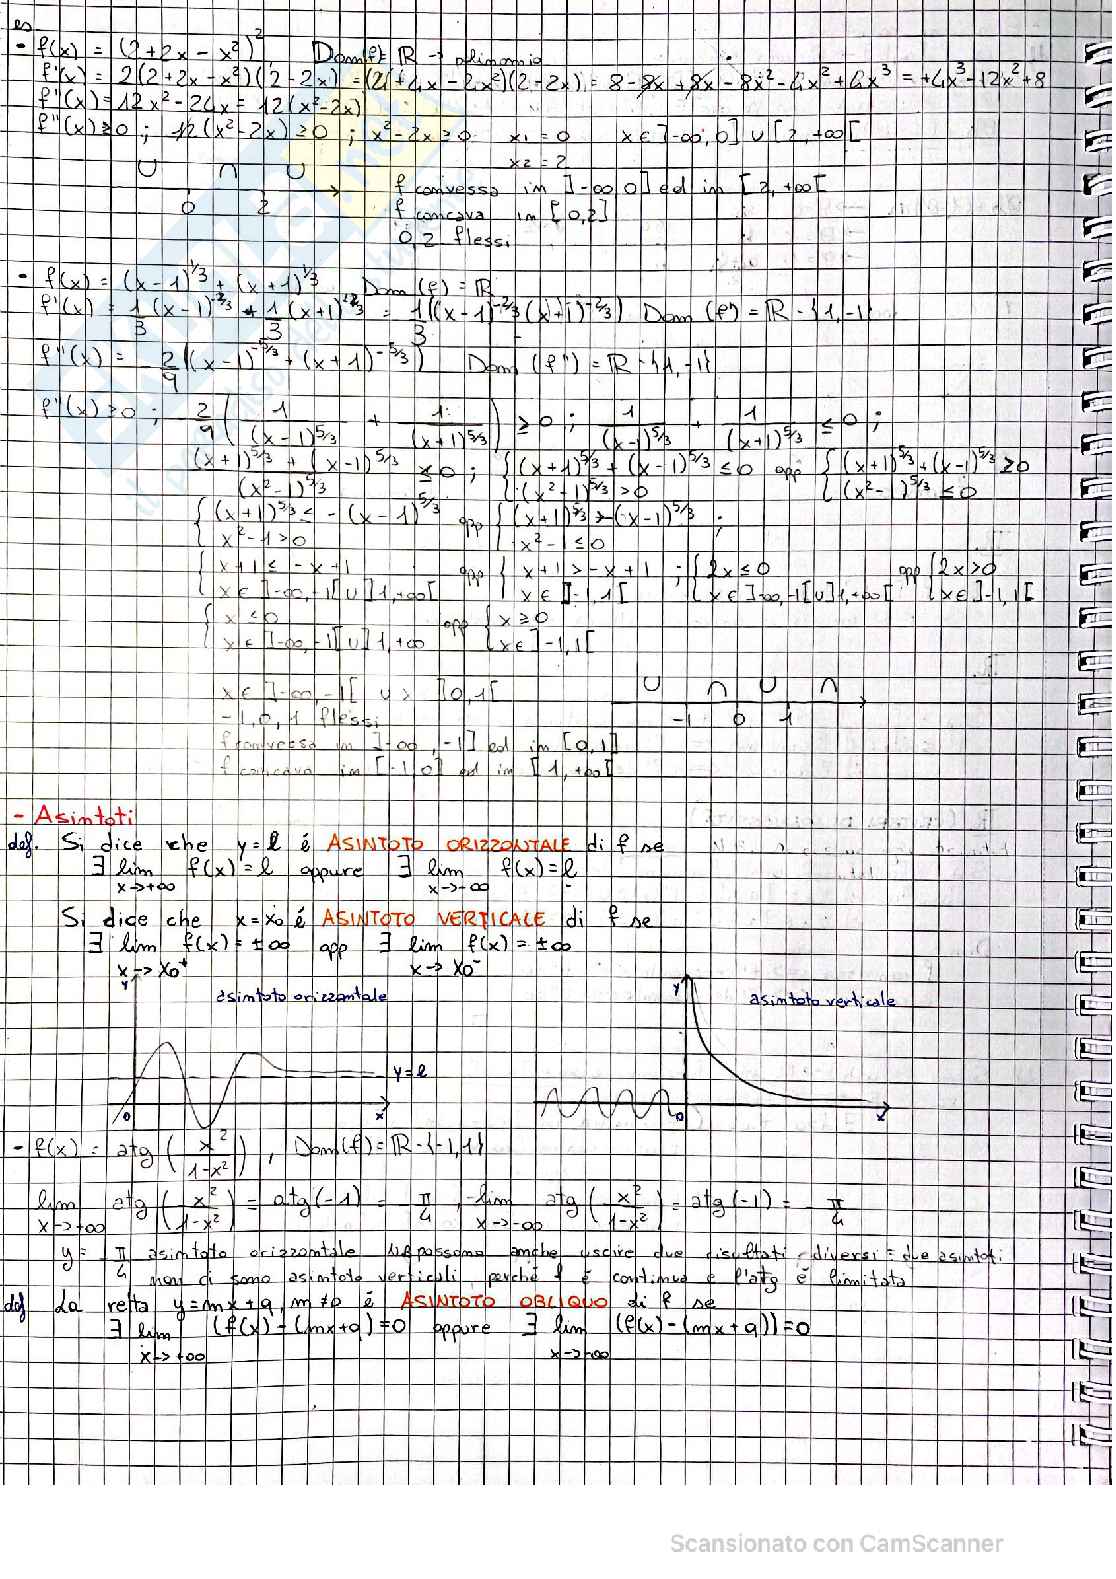 es
- f(x) = (2+2x-x²)² Dom(f)= ℝ → polinomio
f'(x) = 2(2+2x-x²)(2-2x) = (4+4x-2x²)(2-2x) = 8-8x+8x-8x²-4x²+4x³ = +4x³-12x²+8
f''(x) = 12x²-24x = 12(x²-2x)
f''(x) ≥0 ; 12(x²-2x) ≥0 ; x²-2x ≥0 x₁ = 0 x∈]-∞,0] ∪ [2,+∞[
x₂ = 2
∪ ∩ ∪
0 2
f convessa in ]-∞,0] ed in [2,+∞[
f concava in [0,2]
0,2 flessi
- f(x) = (x-1)^1/3 + (x+1)^1/3 Dom(f) = ℝ
f'(x) = 1/3 (x-1)^-2/3 + 1/3 (x+1)^-2/3 = 1/3 ((x-1)^-2/3 + (x+1)^-2/3) Dom(f') = ℝ-{1,-1}
f''(x) = -2/9 ((x-1)^-5/3 + (x+1)^-5/3) Dom(f'') = ℝ-{1,-1}
f''(x) ≥0 ; -2/9 (1/(x-1)^5/3 + 1/(x+1)^5/3) ≥0 ; 1/(x-1)^5/3 + 1/(x+1)^5/3 ≤0 ;
((x+1)^5/3 + (x-1)^5/3)/(x²-1)^5/3 ≤0 ; { (x+1)^5/3 + (x-1)^5/3 ≤0 opp { (x+1)^5/3 + (x-1)^5/3 ≥0
(x²-1)^5/3 >0 (x²-1)^5/3 ≤0
{ (x+1)^5/3 ≤ -(x-1)^5/3 opp { (x+1)^5/3 ≥ -(x-1)^5/3 ;
x²-1>0 x²-1≤0
{ x+1 ≤ -x+1 opp { x+1 > -x+1 ; { 2x ≤0 opp { 2x>0
x∈]-∞,-1[∪]1,+∞[ x∈]-1,1[ x∈]-∞,-1[∪]1,+∞[ x∈]-1,1[
{ x ≤0 opp { x ≥0
x∈]-∞,-1[∪]1,+∞ x∈]-1,1[
x∈]-∞,-1[ ∪ ]0,1[
∪ ∩ ∪ ∩
-1 0 1
-1,0,1 flessi
f convessa in ]-∞,-1] ed in [0,1]
f concava in [-1,0] ed in [1,+∞[
- Asintoti
def. Si dice che y=l é ASINTOTO ORIZZONTALE di f se
∃ lim f(x)=l oppure ∃ lim f(x)=l
x→+∞ x→-∞
Si dice che x=x₀ é ASINTOTO VERTICALE di f se
∃ lim f(x)=±∞ opp ∃ lim f(x)=±∞
x→x₀⁺ x→x₀⁻
y asintoto orizzontale y asintoto verticale
y=l
0 x 0 x
- f(x) = atg(x²/(1-x²)), Dom(f)=ℝ-{-1,1}
lim atg(x²/(1-x²)) = atg(-1) = -π/4, lim atg(x²/(1-x²)) = atg(-1) = -π/4
x→+∞ x→-∞
y=-π/4 asintoto orizzontale possono anche uscire due risultati diversi = due asintoti
non ci sono asintoto verticali, perché f é continua e l'atg é limitata
def La retta y=mx+q, m≠0 é ASINTOTO OBLIQUO di f se
∃ lim (f(x)-(mx+q))=0 oppure ∃ lim (f(x)-(mx+q))=0
x→+∞ x→-∞
Scansionato con CamScanner